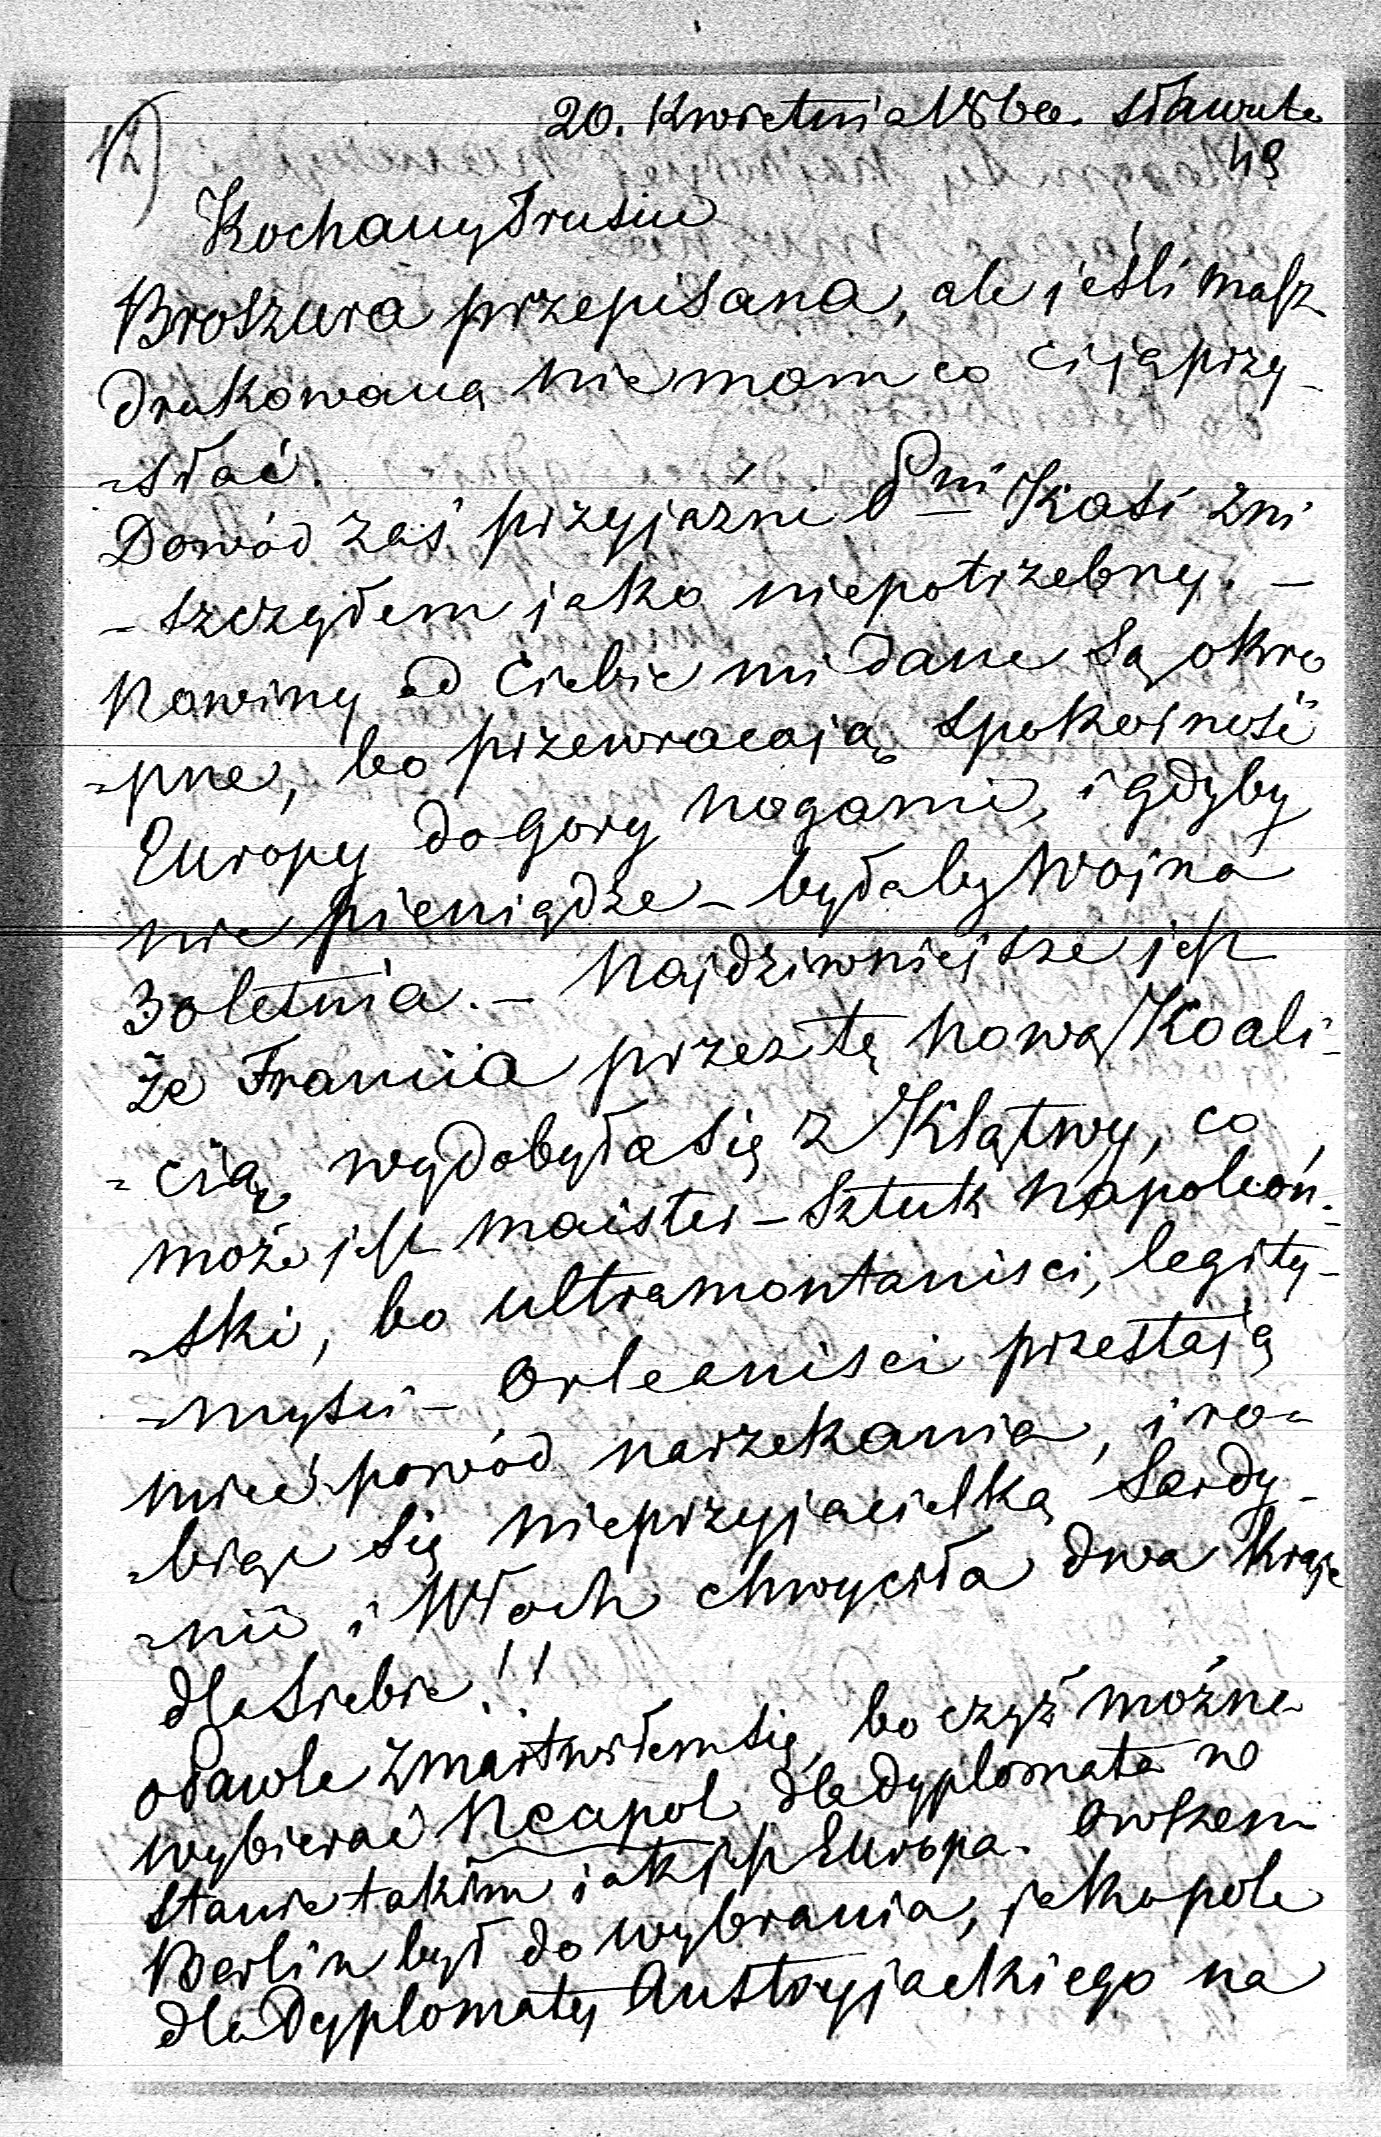 12)
20. Kwietnia 1860. Sławuta
49
Kochany Trusiu
Broszura przepisana, ale jeśli masz
drukowaną nie mam co ci ją przy-
=słać.
Dowód zaś przyjaźni Pni Kasi zni
-szczyłem jako niepotrzebny. -
Nowiny od Ciebie mi dane są okro
=pne, bo przewracają spokojność
Europy do gory nogami, i gdyby
nie pieniądze - byłaby wojna
30letnia. - Najdziwniejsze jest
że Francia przez tę nową Koali-
=cią wydobyła się z Klątwy, co
może jest maister-sztuk napoleoń-
=ski, bo ultramontanisci, legity-
=mysci - Orleanisci przestają
mieć powód narzekania, i ro=
=biąc się nieprzyjacielką Sardy-
=nii i Włoch chwyciła dwa kraje
dla siebie!!
zmartwiłem się, bo czyż można
wybierać Neapol dla dyplomata w
stanie takim jak jest Europa. Owszem
Berlin był do wybrania, jako pole
dla Dyplomaty Austryjackiego na